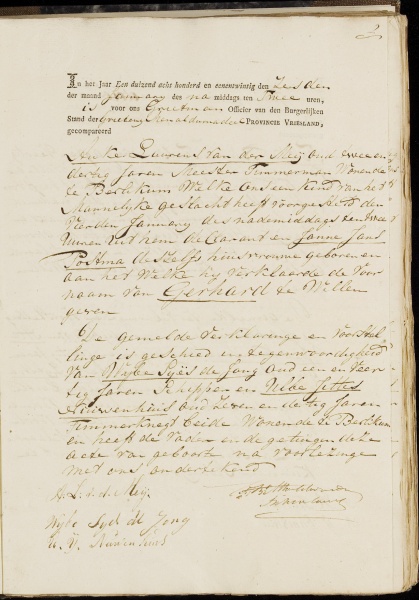 2
In het Jaar Een duizend acht honderd en eenentwintig den Zesden
der maand January des na middags ten Twee uren,
is voor ons Grietman Officier van den Burgerlijken
Stand der Grieteny Menaldumadeel PROVINCIE VRIESLAND,
gecompareerd
Anke Lourens van der Meij oud twee en
dertig Jaren Meester Timmerman wonende
te Berlikum Welke ons een kind van het
Mannelyke geslacht heeft voorgesteld den
Vierden January des nademiddags ten twee
uuren uit hem declarant en Janne Jans
Postma deszelfs huisvrouwe geboren en
aan het welke hy verklaarde de Voor
naam van Gerhard te Willen
geven
De gemelde verklaringe en voorstel
linge is geschied in tegenwoordigheid
van Wybe Syds de Jong oud een en veer
tig Jaren Schipper en Uilke Jettes
Nieuwenhuis oud zeven en dertig Jaren
Timmerknegt beide Wonende te Berlikum
en heeft de vader en de getuigen deze
acte van geboorte na voorlezinge
met ons ondertekend
A. L. v. d. Meij.
Wybe Syds de Jong